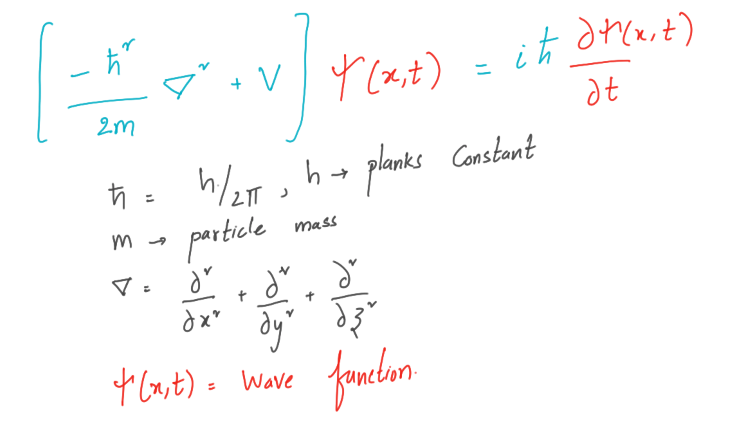 [ -ħ² / 2m ∇² + V ] Ψ(x,t) = iħ ∂Ψ(x,t) / ∂t
ħ = h/2π , h → planks Constant
m → particle mass
∇ = ∂²/∂x² + ∂²/∂y² + ∂²/∂z²
Ψ(x,t) = Wave function.